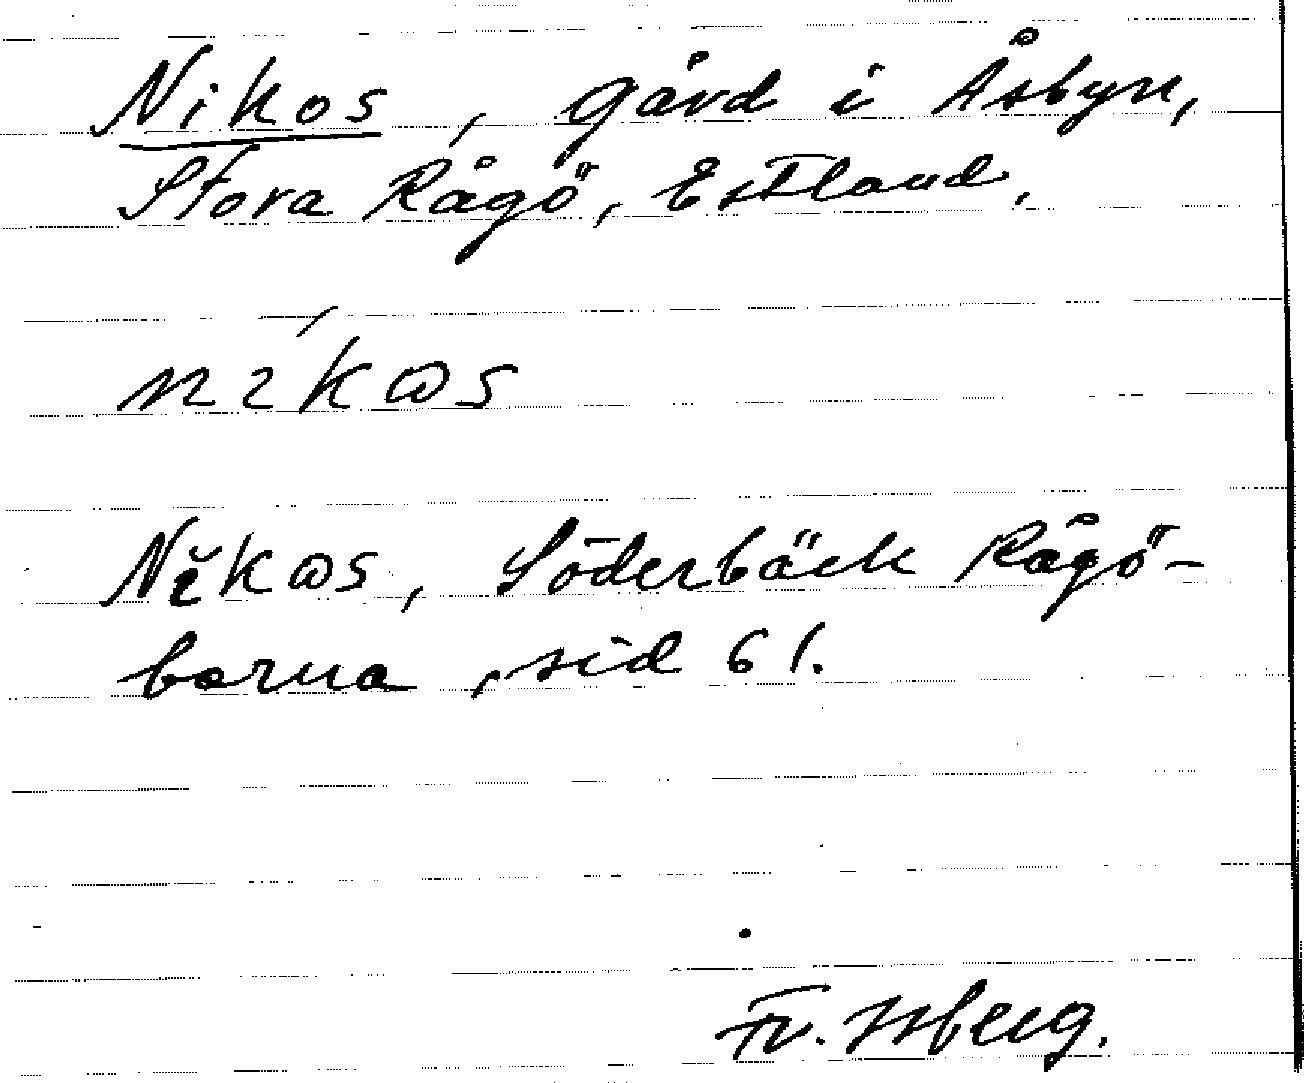 Nikos, gård i Åsbyn,
Stora Rågö, Estland.
níkωs
Nĭkωs, Söderbäck Rågö-
borna, sid 61.
Fr. Isberg.